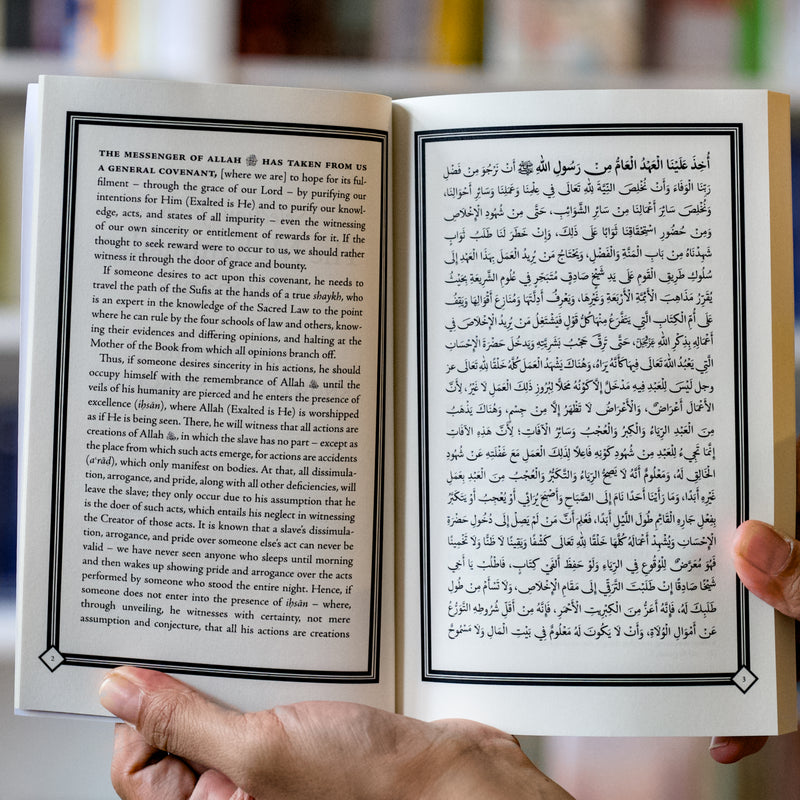 THE MESSENGER OF ALLAH ﷺ HAS TAKEN FROM US
A GENERAL COVENANT, [where we are] to hope for its ful-
filment – through the grace of our Lord – by purifying our
intentions for Him (Exalted is He) and to purify our knowl-
edge, acts, and states of all impurity – even the witnessing
of our own sincerity or entitlement of rewards for it. If the
thought to seek reward were to occur to us, we should rather
witness it through the door of grace and bounty.
If someone desires to act upon this covenant, he needs to
travel the path of the Sufis at the hands of a true shaykh, who
is an expert in the knowledge of the Sacred Law to the point
where he can rule by the four schools of law and others, know-
ing their evidences and differing opinions, and halting at the
Mother of the Book from which all opinions branch off.
Thus, if someone desires sincerity in his actions, he should
occupy himself with the remembrance of Allah until the
veils of his humanity are pierced and he enters the presence of
excellence (iḥsān), where Allah (Exalted is He) is worshipped
as if He is being seen. There, he will witness that all actions are
creations of Allah, in which the slave has no part – except as
the place from which such acts emerge, for actions are accidents
(aʿrāḍ), which only manifest on bodies. At that, all dissimula-
tion, arrogance, and pride, along with all other deficiencies, will
leave the slave; they only occur due to his assumption that he
is the doer of such acts, which entails his neglect in witnessing
the Creator of those acts. It is known that a slave's dissimula-
tion, arrogance, and pride over someone else's act can never be
valid – we have never seen anyone who sleeps until morning
and then wakes up showing pride and arrogance over the acts
performed by someone who stood the entire night. Hence, if
someone does not enter into the presence of iḥsān – where,
through unveiling, he witnesses with certainty, not mere
assumption and conjecture, that all his actions are creations
2
أُخِذَ عَلَيْنَا الْعَهْدُ الْعَامُّ مِنْ رَسُولِ اللهِ ﷺ أَنْ نَرْجُوَ مِنْ فَضْلِ
رَبِّنَا الْوَفَاءَ وَأَنْ نُخْلِصَ النِّيَّةَ لِلهِ تَعَالَى فِي عِلْمِنَا وَعَمَلِنَا وَسَائِرِ أَحْوَالِنَا،
وَنُخْلِصَ سَائِرَ أَعْمَالِنَا مِنْ سَائِرِ الشَّوَائِبِ، حَتَّى مِنْ شُهُودِ الْإِخْلَاصِ
وَمِنْ حُضُورِ اسْتِحْقَاقِنَا ثَوَابًا عَلَى ذَلِكَ، وَإِنْ خَطَرَ لَنَا طَلَبُ ثَوَابٍ
شَهِدْنَاهُ مِنْ بَابِ الْمِنَّةِ وَالْفَضْلِ، وَيَحْتَاجُ مَنْ يُرِيدُ الْعَمَلَ بِهَذَا الْعَهْدِ إِلَى
سُلُوكِ طَرِيقِ الْقَوْمِ عَلَى يَدِ شَيْخٍ صَادِقٍ مُتَبَحِّرٍ فِي عُلُومِ الشَّرِيعَةِ بِحَيْثُ
يُقَرِّرُ مَذَاهِبَ الْأَئِمَّةِ الْأَرْبَعَةِ وَغَيْرِهَا، وَيَعْرِفُ أَدِلَّتَهَا وَمَنَازِعَ أَقْوَالِهَا وَيَقِفُ
عَلَى أُمِّ الْكِتَابِ الَّتِي يَتَفَرَّعُ مِنْهَا كُلُّ قَوْلٍ فَيَشْتَغِلُ مَنْ يُرِيدُ الْإِخْلَاصَ فِي
أَعْمَالِهِ بِذِكْرِ اللهِ عَزَّوَجَلَّ، حَتَّى تَرِقَّ حُجُبُ بَشَرِيَّتِهِ وَيَدْخُلَ حَضْرَةَ الْإِحْسَانِ
الَّتِي يَعْبُدُ اللهَ تَعَالَى فِيهَا كَأَنَّهُ يَرَاهُ، وَهُنَاكَ يَشْهَدُ الْعَمَلَ كُلَّهُ خَلْقًا لِلهِ تَعَالَى عز
وجل لَيْسَ لِلْعَبْدِ فِيهِ مَدْخَلٌ إِلَّا كَوْنُهُ مَحَلًّا لِبُرُوزِ ذَلِكَ الْعَمَلِ لَا غَيْرُ، لِأَنَّ
الْأَعْمَالَ أَعْرَاضٌ، وَالْأَعْرَاضُ لَا تَظْهَرُ إِلَّا مِنْ جِسْمٍ، وَهُنَاكَ يَذْهَبُ
مِنَ الْعَبْدِ الرِّيَاءُ وَالْكِبْرُ وَالْعُجْبُ وَسَائِرُ الْآفَاتِ؛ لِأَنَّ هَذِهِ الْآفَاتِ
إِنَّمَا تَجِيءُ لِلْعَبْدِ مِنْ شُهُودِ كَوْنِهِ فَاعِلًا لِذَلِكَ الْعَمَلِ مَعَ غَفْلَتِهِ عَنْ شُهُودِ
الْخَالِقِ لَهُ، وَمَعْلُومٌ أَنَّهُ لَا يَصِحُّ الرِّيَاءُ وَالتَّكَبُّرُ وَالْعُجْبُ مِنَ الْعَبْدِ بِعَمَلِ
غَيْرِهِ أَبَدًا، وَمَا رَأَيْنَا أَحَدًا نَامَ إِلَى الصَّبَاحِ وَأَصْبَحَ يُرَائِي أَوْ يُعْجِبُ أَوْ يَتَكَبَّرُ
بِفِعْلِ جَارِهِ الْقَائِمِ طُولَ اللَّيْلِ أَبَدًا، فَعُلِمَ أَنَّ مَنْ لَمْ يَصِلْ إِلَى دُخُولِ حَضْرَةِ
الْإِحْسَانِ وَيَشْهَدُ أَعْمَالَهُ كُلَّهَا خَلْقًا لِلهِ تَعَالَى كَشْفًا وَيَقِينًا لَا ظَنًّا وَلَا تَخْمِينًا
فَهُوَ مُعَرَّضٌ لِلْوُقُوعِ فِي الرِّيَاءِ وَلَوْ حَفِظَ أَلْفَيْ كِتَابٍ، فَاطْلُبْ يَا أَخِي
شَيْخًا صَادِقًا إِنْ طَلَبْتَ التَّرَقِّيَ إِلَى مَقَامِ الْإِخْلَاصِ، وَلَا تَسْأَمْ مِنْ طُولِ
طَلَبِكَ لَهُ، فَإِنَّهُ أَعَزُّ مِنَ الْكِبْرِيتِ الْأَحْمَرِ، فَإِنَّهُ مِنْ أَقَلِّ شُرُوطِهِ التَّوَرُّعُ
عَنْ أَمْوَالِ الْوُلَاةِ، وَأَنْ لَا يَكُونَ لَهُ مَعْلُومٌ فِي بَيْتِ الْمَالِ وَلَا مَسْمُوحٌ
3